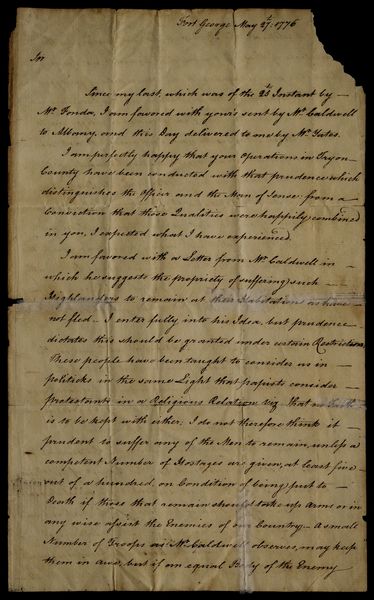 Fort George May 27th. 1776
Sir
Since my last, which was of the 25 Instant by
Mr. Fonda, I am favored with yours sent by Mr. Caldwell
to Albany, and this Day delivered to me by Mr. Yates.
I am perfectly happy that your Operations in Tryon
County have been conducted with that prudence which
distinguishes the Officer and the Man of Sense from a
Conviction that those Qualities were happily combined
in you, I expected what I have experienced.
I am favored with a Letter from Mr. Caldwell in
which he suggests the propriety of suffering such
Highlanders to remain at their Habitations as have
not fled – I enter fully into his Idea, but prudence
dictates this should be granted under certain Restrictions
These people have been taught to consider us in
politicks in the same Light that papists consider
protestants in a Religious Relation viz. That no Faith
is to be kept with either. I do not therefore think it
prudent to suffer any of the Men to remain, unless a
competent Number of Hostages are given, at least five
out of a hundred, on Condition of being put to
Death if those that remain should take up Arms or in
any wise assist the Enemies of our Country.– A small
Number of Troops as Mr. Caldwell observes, may keep
them in awe, but if an equal Body of the Enemy